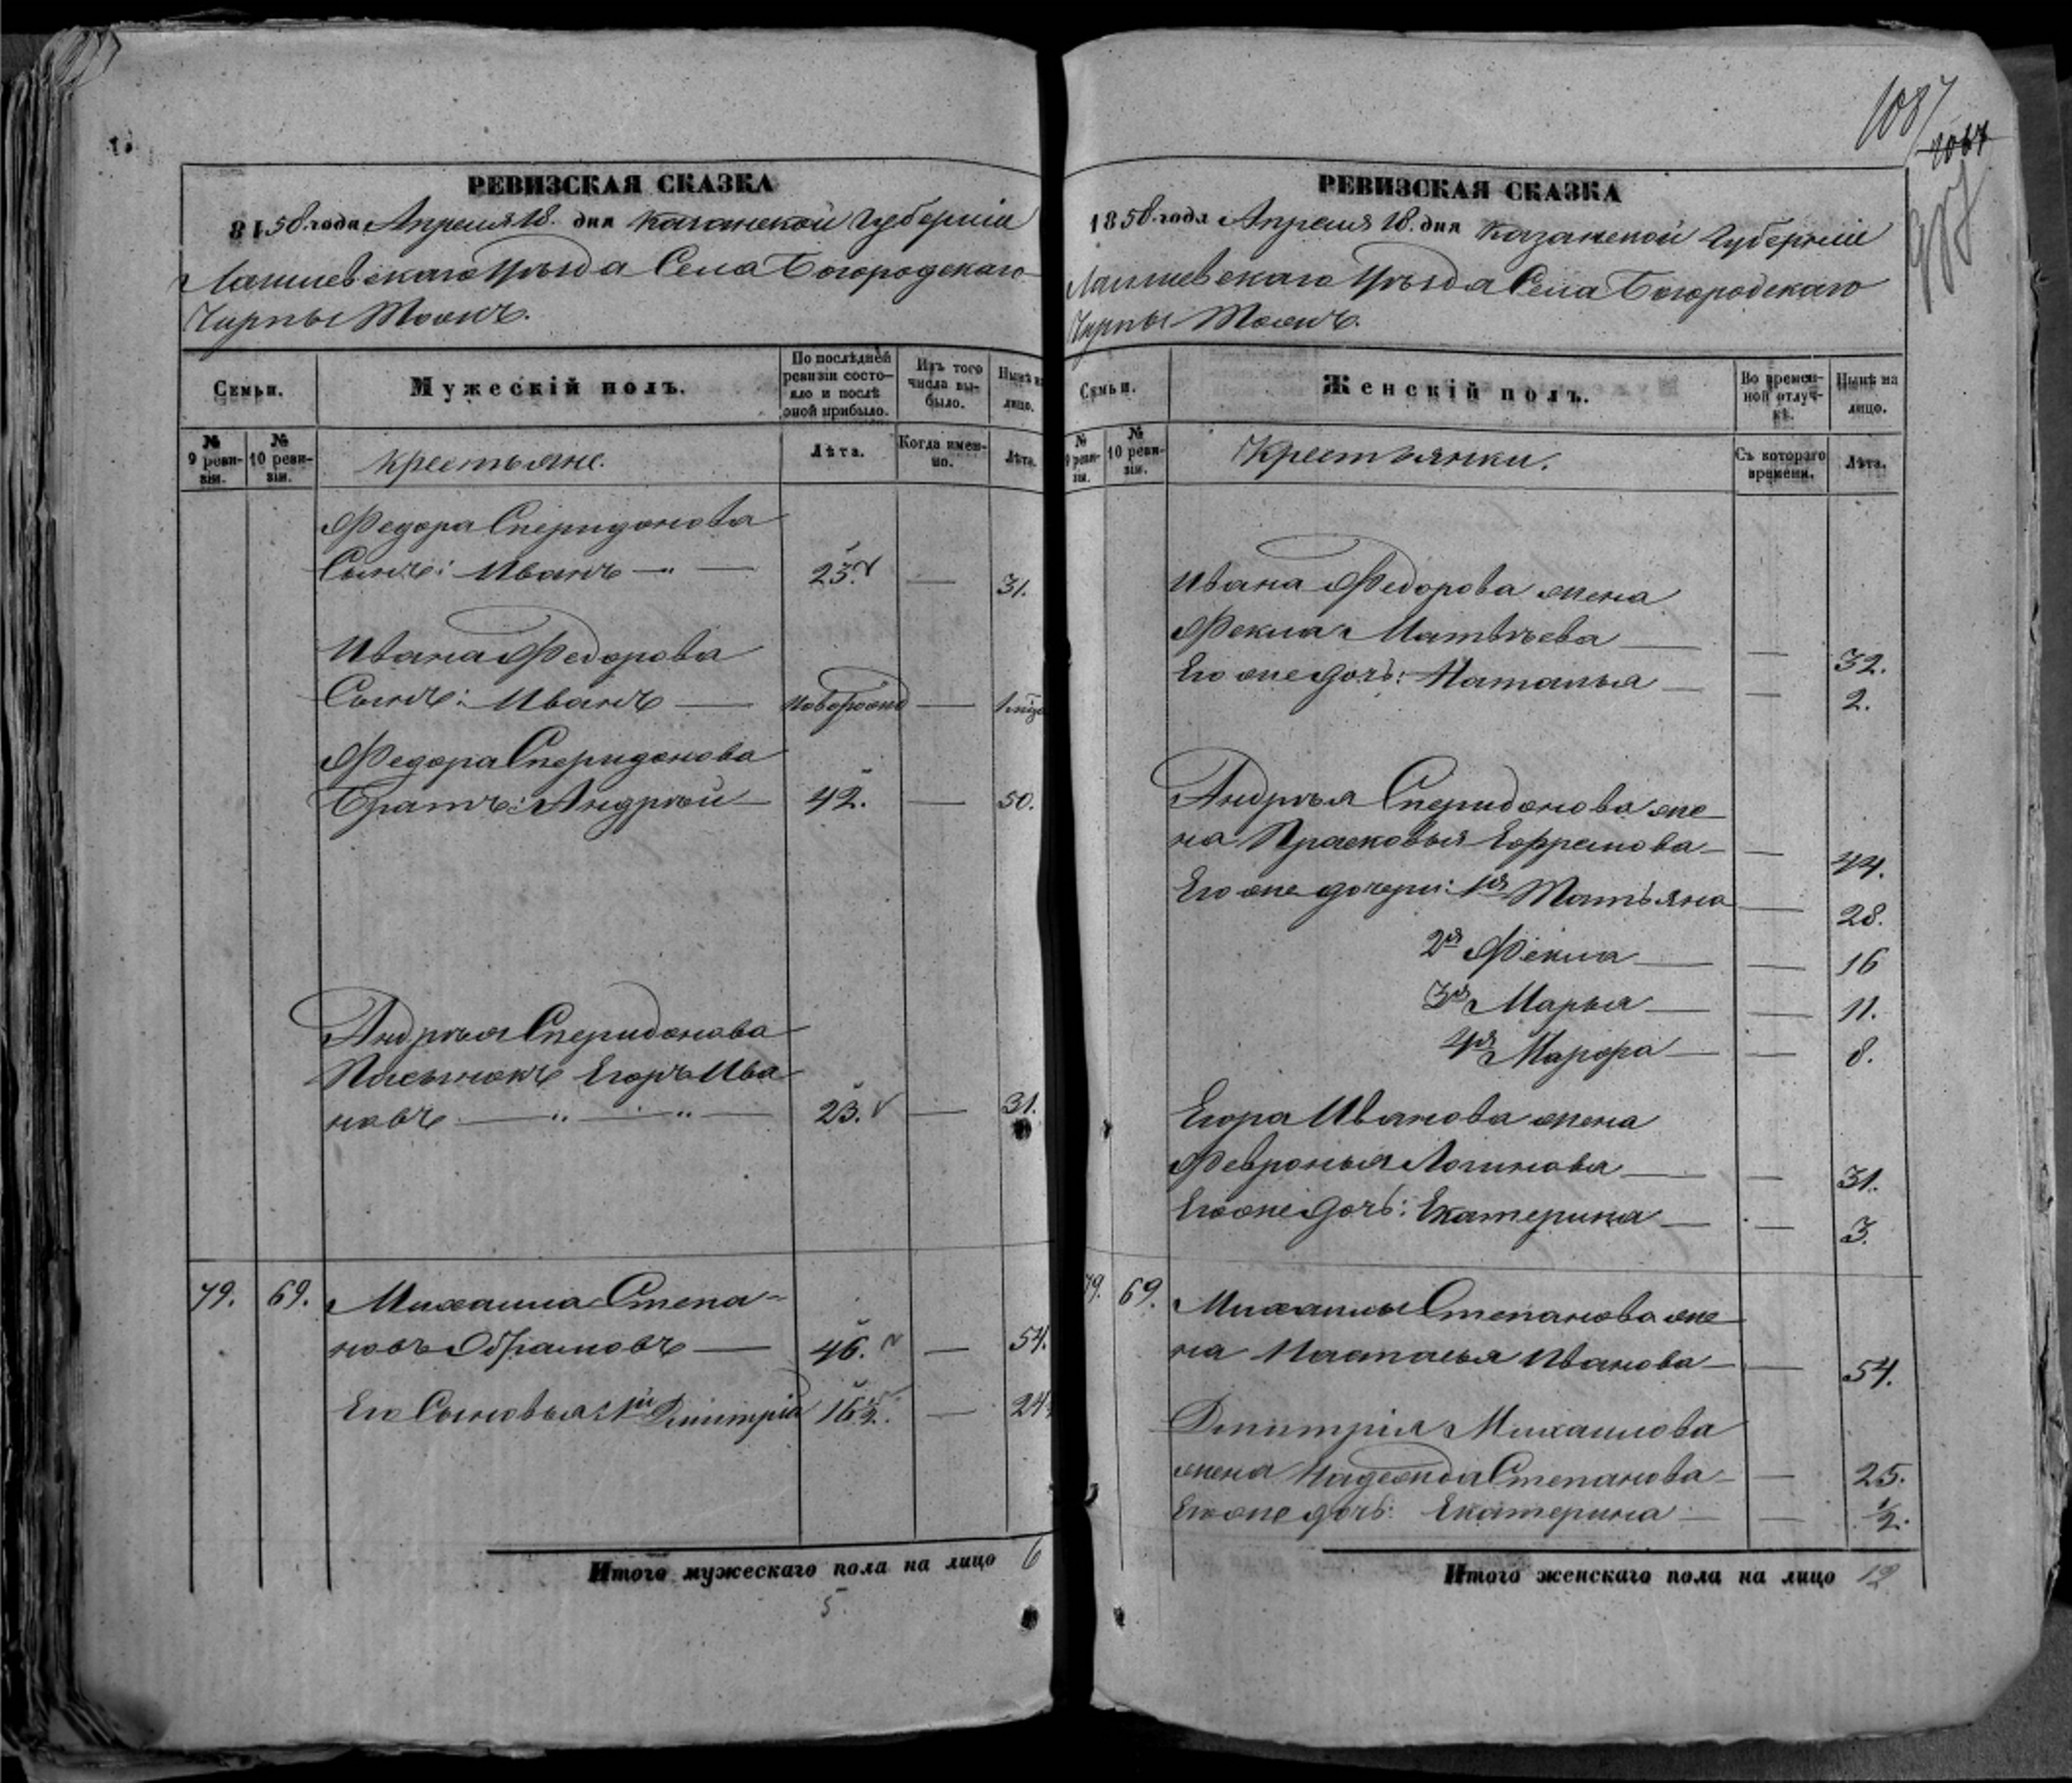 РЕВИЗСКАЯ СКАЗКА
8150. года Апреля 18. дня Казанской Губерніи
Лаишевскаго Уѣзда Села Богородскаго
Чирпы Тожъ.
Семьи.
Мужескій полъ.
По послѣдней
ревизіи состо-
яло и послѣ
оной прибыло.
Изъ того
числа вы-
было.
Нынѣ на
лицо.
№
9 реви-
зіи.
№
10 реви-
зіи.
Крестьяне.
Лѣта.
Когда имен-
но.
Лѣта.
Федора Сперидонова
Сынъ: Иванъ — " — 23. — 31.
Ивана Федорова
Сынъ: Иванъ — новорожд —
Федора Сперидонова
Братъ: Андрей — 42. — 50.
Андрея Сперидонова
Пасынокъ Егоръ Ива
новъ — " — " — 23. — 31.
79. 69. Михаила Степа-
новъ Абрамовъ — 46. — 54.
Его Сыновья 1й Дмитрій 16½. — 24
Итого мужескаго пола на лицо 6
5.
1087
987
РЕВИЗСКАЯ СКАЗКА
1858. года Апреля 18. дня Казанской Губерніи
Лаишевскаго Уѣзда Села Богородскаго
Чирпы Тожъ.
Семьи.
Женскій полъ.
Во времен-
ной отлуч-
кѣ.
Нынѣ на
лицо.
№
9 реви-
зіи.
№
10 реви-
зіи.
Крестьянки.
Съ котораго
времени.
Лѣта.
Ивана Федорова жена
Фекла Матвѣева — — 32.
Его же дочь: Наталья — — 2.
Андрея Сперидонова же
на Прасковья Ефремова — — 44.
Его же дочери: 1я Татьяна — 28.
2я Фекла — — 16
3я Марья — — 11.
4я Марфа — — 8.
Егора Иванова жена
Февронья Логинова — — 31.
Его же дочь: Екатерина — — 3.
79. 69. Михаилы Степанова же
на Настасья Иванова — — 54.
Дмитрія Михаилова
жена Надежда Степанова — — 25.
Его же дочь: Екатерина — — ½.
Итого женскаго пола на лицо 12